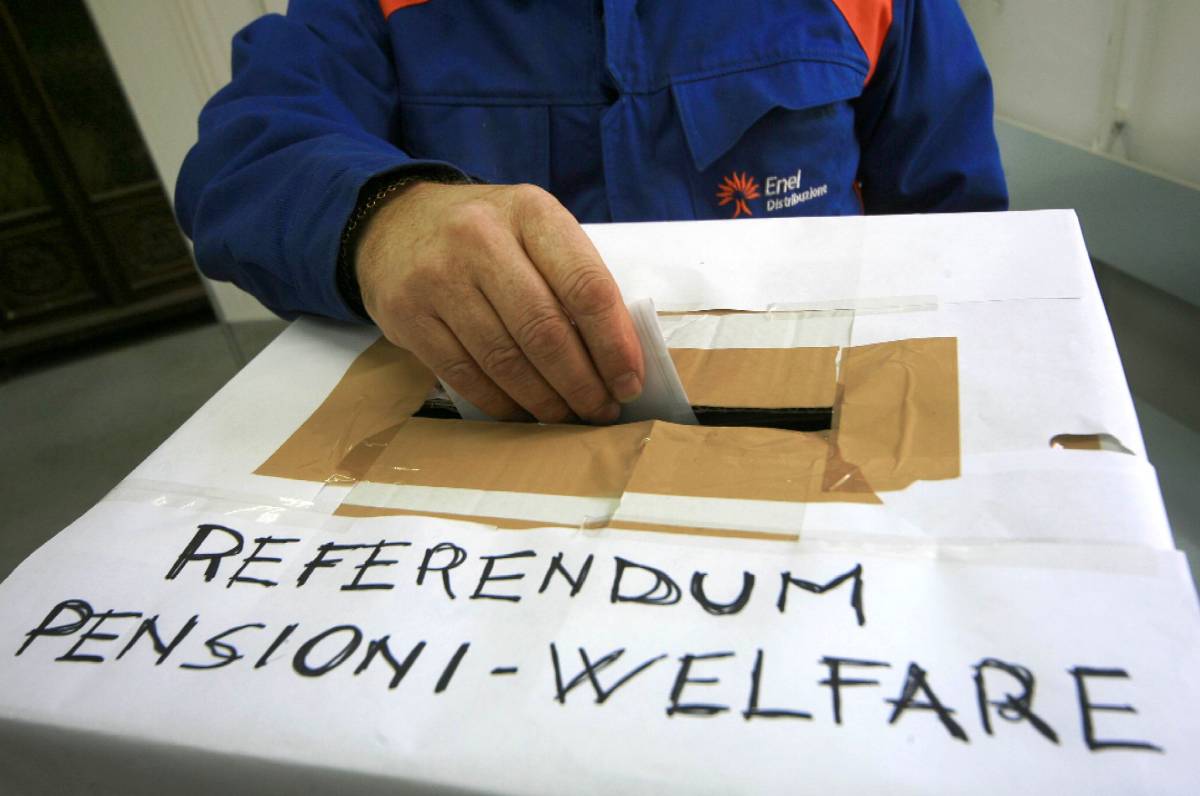 Enel
Distribuzione
REFERENDUM
PENSIONI - WELFARE